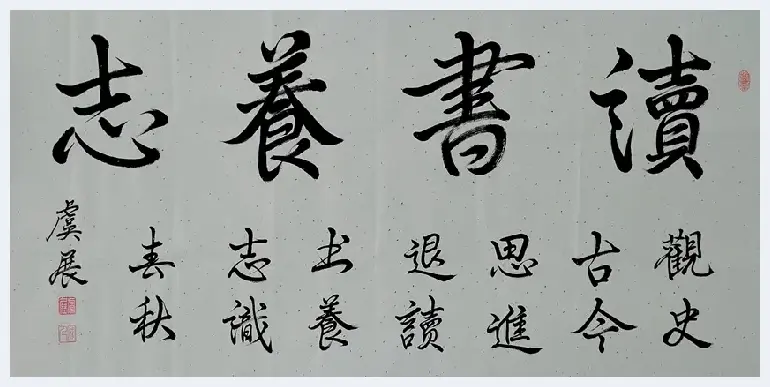 讀書養志
觀史
古今
思進
退讀
书養
志識
春秋
虞展